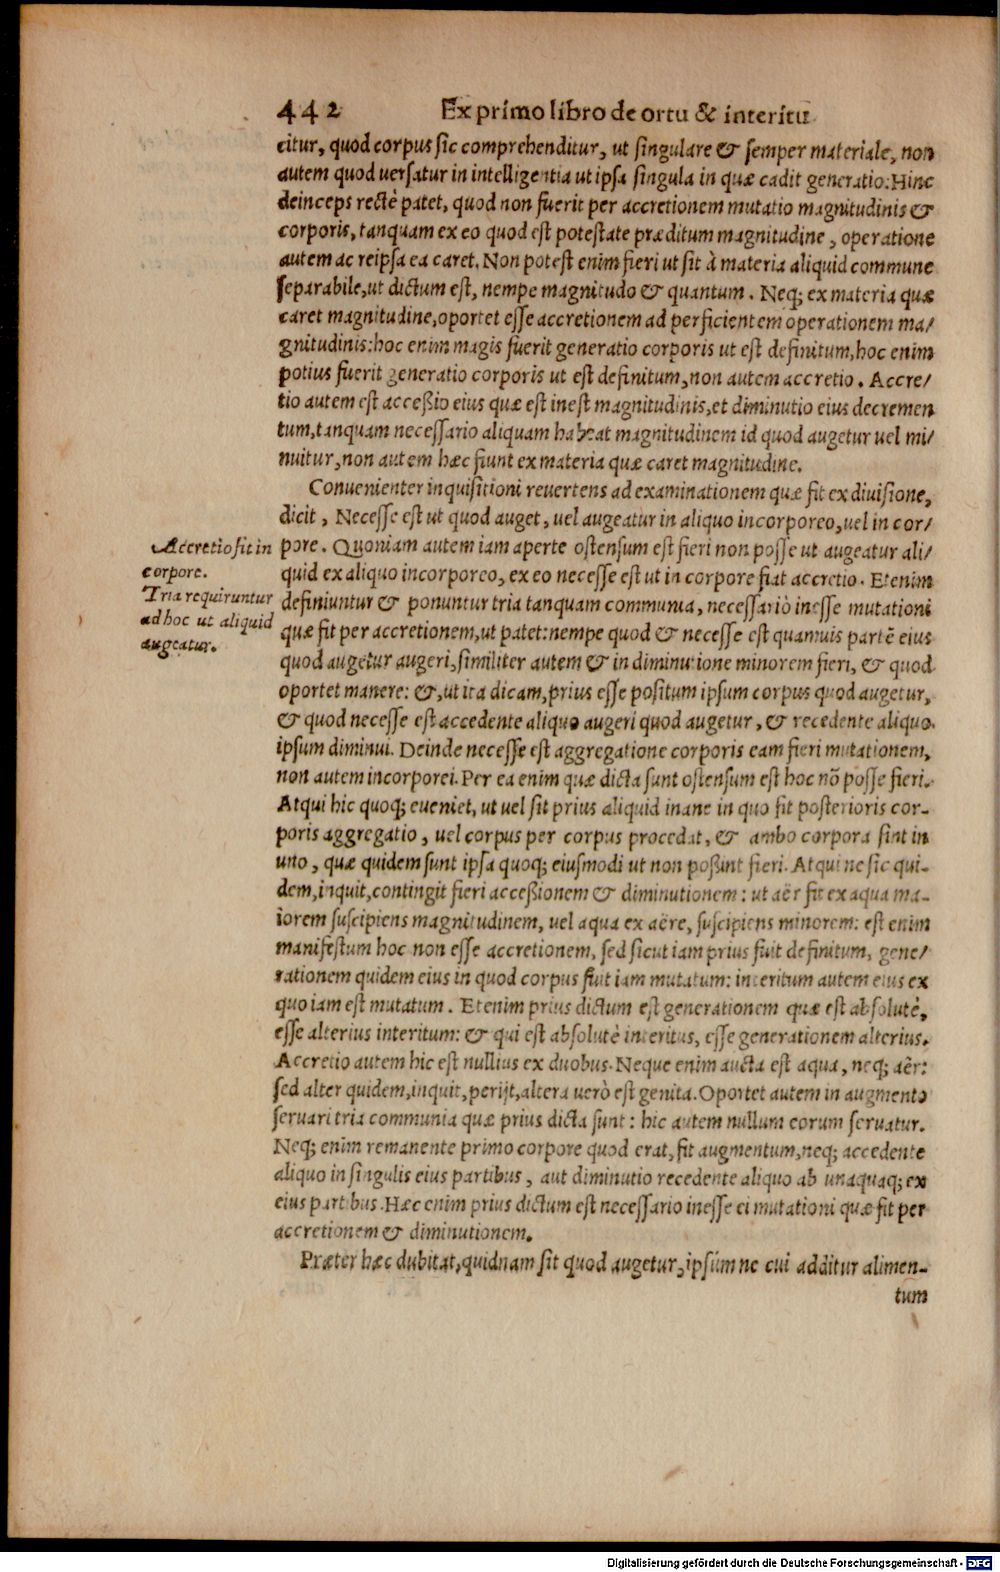 442 Ex primo libro de ortu & interitu
citur, quod corpus sic comprehenditur, ut singulare & semper materiale, non
autem quod versatur in intelligentia ut ipsa singula in quæ cadit generatio: Hinc
deinceps rectè patet, quod non fuerit per accretionem mutatio magnitudinis &
corporis, tanquam ex eo quod est potestate præditum magnitudine, operatione
autem ac reipsa ea caret. Non potest enim fieri ut sit à materia aliquid commune
separabile, ut dictum est, nempe magnitudo & quantum. Neq; ex materia quæ
caret magnitudine, oportet esse accretionem ad perficientem operationem ma/
gnitudinis: hoc enim magis fuerit generatio corporis ut est definitum, hoc enim
potius fuerit generatio corporis ut est definitum, non autem accretio. Accre/
tio autem est accessio eius quæ est inest magnitudinis, et diminutio eius decremen
tum, tanquam necessario aliquam habeat magnitudinem id quod augetur vel mi/
nuitur, non autem hæc fiunt ex materia quæ caret magnitudine.
Convenienter inquisitioni revertens ad examinationem quæ fit ex divisione,
dicit, Necesse est ut quod auget, vel augeatur in aliquo incorporeo, vel in cor/
Accretio fit in
corpore.
Tria requiruntur
ad hoc ut aliquid
augeatur.
pore. Quoniam autem iam aperte ostensum est fieri non posse ut augeatur ali/
quid ex aliquo incorporeo, ex eo necesse est ut in corpore fiat accretio. Etenim
definiuntur & ponuntur tria tanquam communia, necessariò inesse mutationi
quæ fit per accretionem, ut patet: nempe quod & necesse est quamuis partẽ eius
quod augetur augeri, similiter autem & in diminutione minorem fieri, & quod
oportet manere: &, ut ita dicam, prius esse positum ipsum corpus quod augetur,
& quod necesse est accedente aliquo augeri quod augetur, & recedente aliquo
ipsum diminui. Deinde necesse est aggregatione corporis eam fieri mutationem,
non autem incorporei. Per ea enim quæ dicta sunt ostensum est hoc nõ posse fieri.
Atqui hic quoq; eveniet, ut vel sit prius aliquid inane in quo fit posterioris cor-
poris aggregatio, vel corpus per corpus procedat, & ambo corpora sint in
uno, quæ quidem sunt ipsa quoq; eiusmodi ut non possint fieri. Atqui ne sic qui-
dem, inquit, contingit fieri accessionem & diminutionem: ut aër fit ex aqua ma-
iorem suscipiens magnitudinem, vel aqua ex aëre, suscipiens minorem: est enim
manifestum hoc non esse accretionem, sed sicut iam prius fuit definitum, gene/
rationem quidem eius in quod corpus fuit iam mutatum: interitum autem eius ex
quo iam est mutatum. Etenim prius dictum est generationem quæ est absolutè,
esse alterius interitum: & qui est absolutè interitus, esse generationem alterius.
Accretio autem hic est nullius ex duobus. Neque enim aucta est aqua, neq; aër:
sed alter quidem, inquit, perijt, altera verò est genita. Oportet autem in augmento
servari tria communia quæ prius dicta sunt: hic autem nullum eorum servatur.
Neq; enim remanente primo corpore quod erat, fit augmentum, neq; accedente
aliquo in singulis eius partibus, aut diminutio recedente aliquo ab unaquaq; ex
eius partibus. Hæc enim prius dictum est necessario inesse ei mutationi quæ fit per
accretionem & diminutionem.
Præter hæc dubitat, quidnam sit quod augetur, ipsúm ne cui additur alimen-
tum
Digitalisierung gefördert durch die Deutsche Forschungsgemeinschaft - DFG